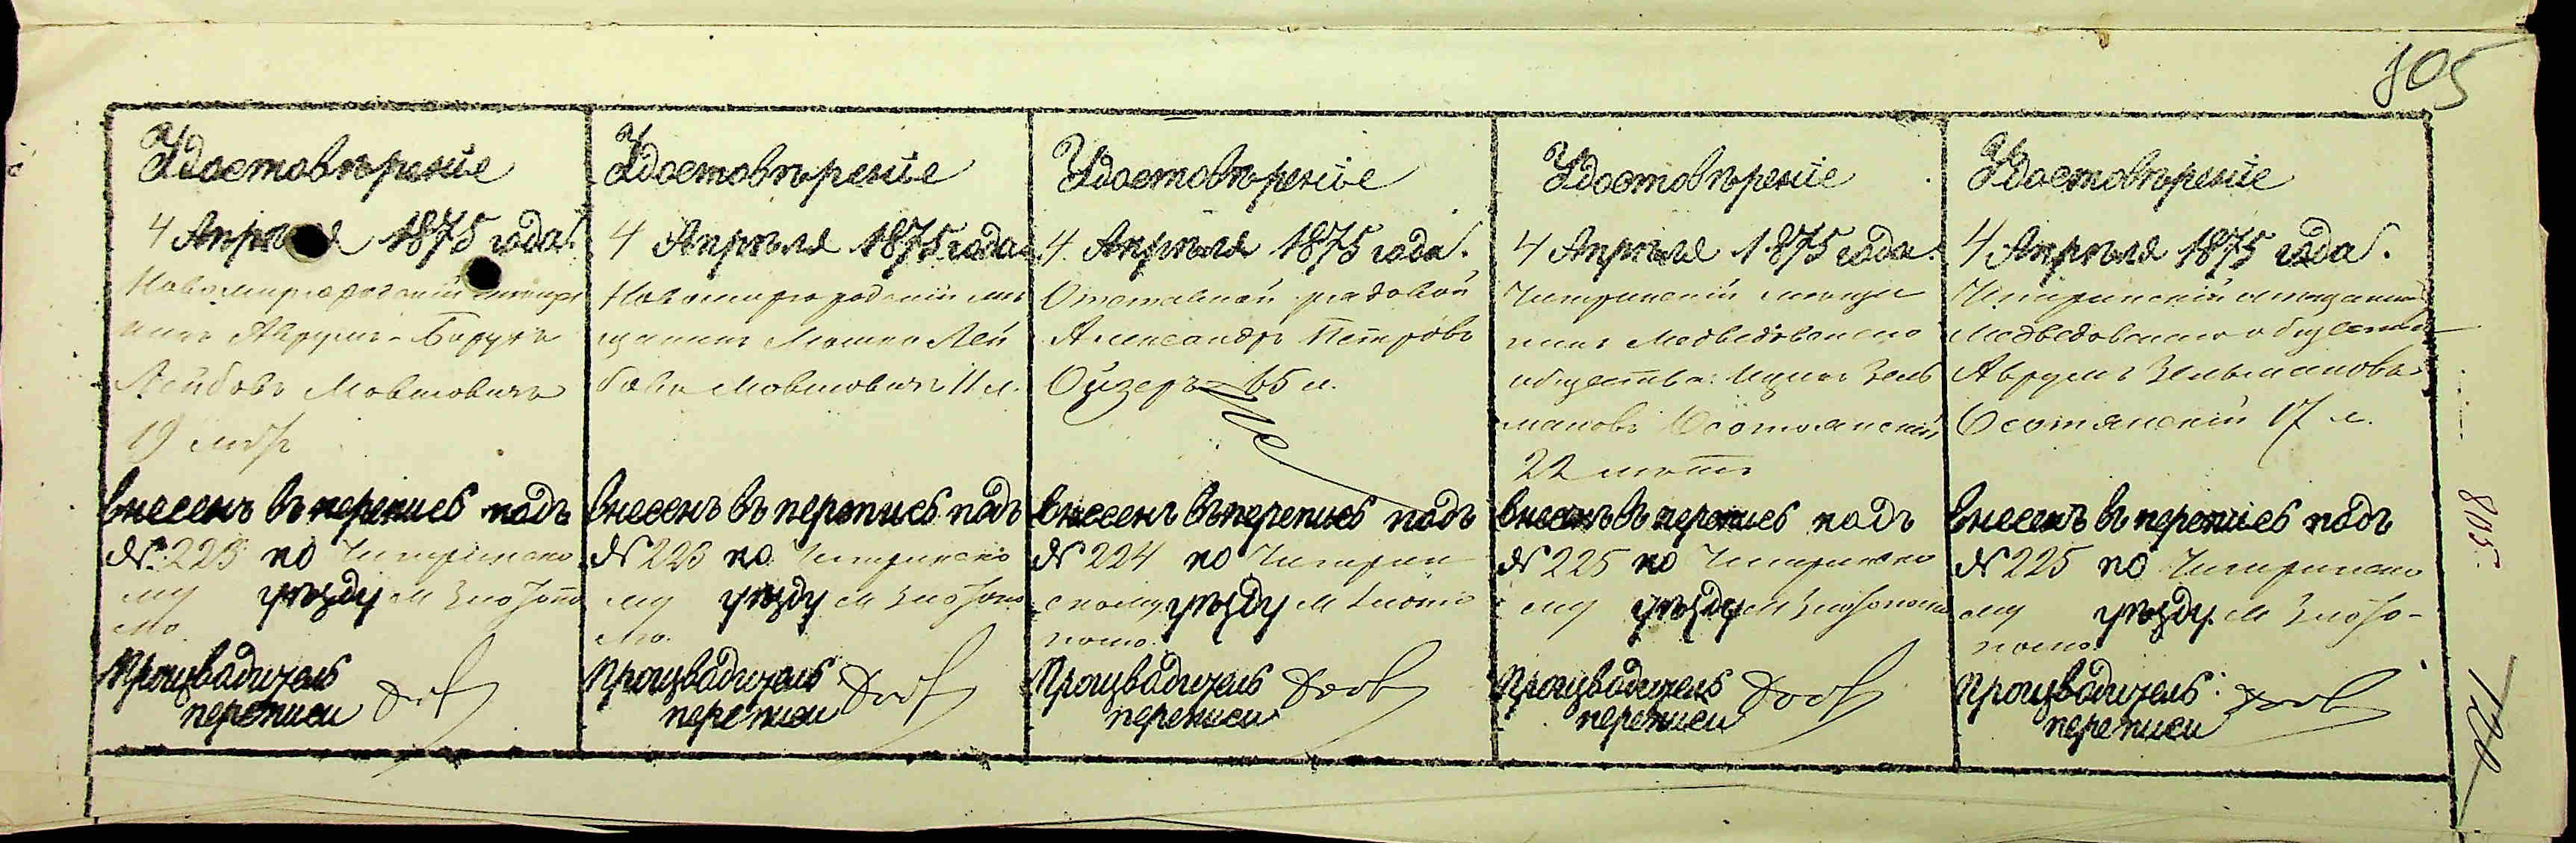 105
Удостовѣреніе
4 Апрѣля 1875 года.
Новомиргородскій мѣща
нинъ Аврумъ-Барухъ
Лейбовъ Мовшовичъ
19 лѣтъ
внесенъ въ перепись подъ
№ 223 по Чигиринско
му уѣзду м Златопо
лю.
Производитель
переписи
Удостовѣреніе
4 Апрѣля 1875 года
Новомиргородскій мѣ
щанинъ Мошко Лей
бовъ Мовшовичъ 11 л.
внесенъ въ перепись подъ
№ 223 по Чигиринско
му уѣзду м Златопо
лю.
Производитель
переписи
Удостовѣреніе
4 Апрѣля 1875 года.
Отставной рядовой
Александръ Петровъ
Ойзеръ 65 л.
внесенъ въ перепись подъ
№ 224 по Чигирин
скому уѣзду м Злато
полю.
Производитель
переписи
Удостовѣреніе
4 Апрѣля 1875 года.
Чигиринскій мѣща
нинъ Медведовскаго
общества Ицко Зель
мановъ Осотянскій
22 лѣтъ
внесенъ въ перепись подъ
№ 225 по Чигиринско
му уѣзду м Златополю
Производитель
переписи
Удостовѣреніе
4 Апрѣля 1875 года.
Чигиринскій мѣщанинъ
Медведовскаго общества
Аврумъ Зельмановъ
Осотянскій 17 л.
внесенъ въ перепись подъ
№ 225 по Чигиринско
му уѣзду. м Злато-
полю
Производитель
переписи